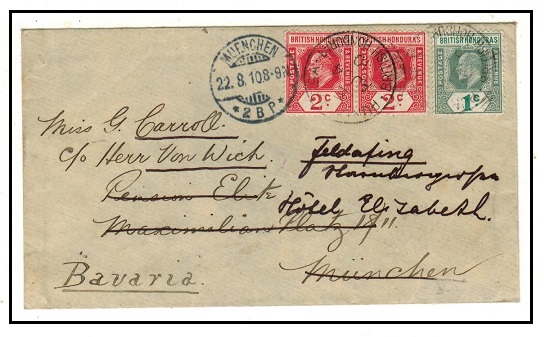 MUENCHEN
22.8.10.8-9
* 2 B.P. *
BRITISH HONDURAS
POSTAGE & REVENUE
2c
BRITISH HONDURAS
POSTAGE & REVENUE
2c
BRITISH HONDURAS
POSTAGE & REVENUE
1c
Miss G. Carroll.
c/o Herr Von Wich.
Feldafing
Pension Elite
Hôtel Elizabeth.
Maximilians Platz 18
Bavaria.
München